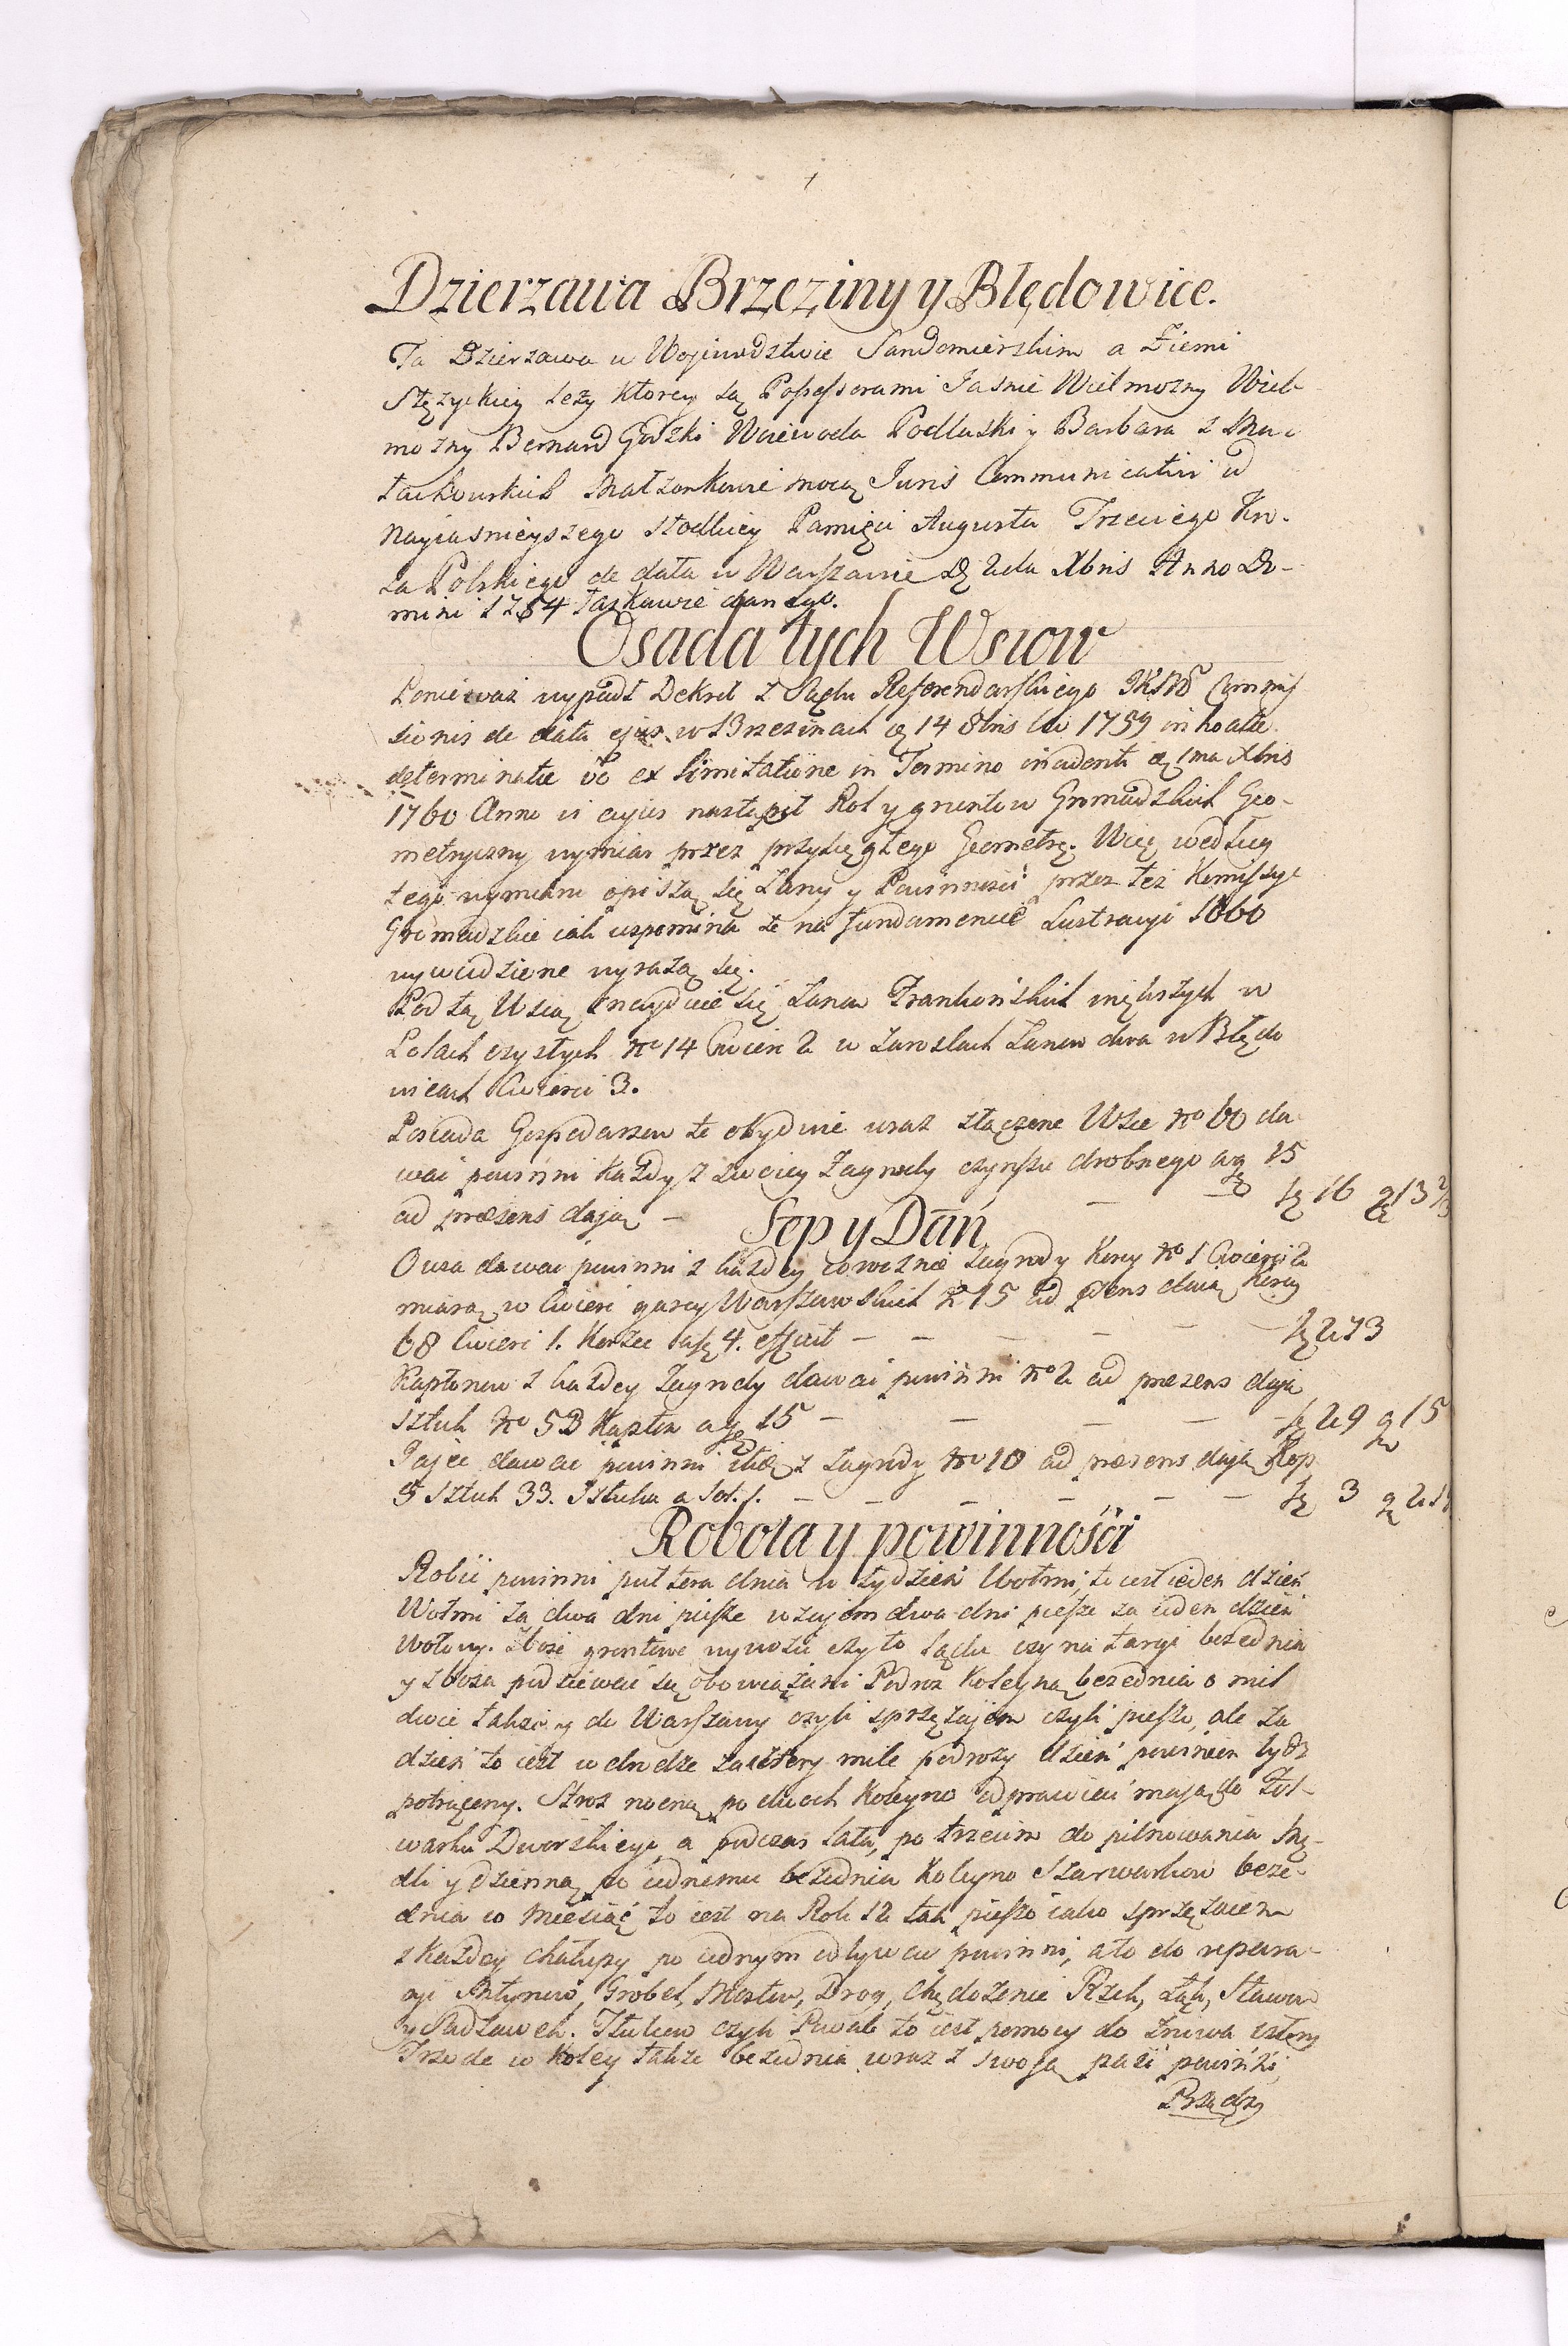 Dzierzawa Brzeziny y Błędowice.
Ta Dzierzawa w Wojewodztwie Sandomierskim a Ziemi
Stęzyckiey lezy ktorey są Possessorami Jasnie Wielmozny Wiel-
mozny Bernard Gozki Woiewoda Podlaski y Barbara z
Małzonkowie mocą Juris Communicativi od
Nayiasnieyszego słodkiey Pamięci Augusta Trzeciego Kro-
la Polskiego de data w Warszawie Xbris Anno Do-
mini 1754 łaskawie danego.
Osada tych Wsiow
Poniewaz wypadł Dekret z Sądu Referendarskiego JKMci Commis
sionis de data ejus w Brzezinach 14 8bris 1759 inhoatae
determinatae vo ex limitatione in Termino incidenti Xbris
1760 Anno vi cujus nastąpił Rol y gruntow Gromadzkich Geo-
metryczny wymiar przez przysięgłego Geometrę. Więc według
tego wymiaru opiszą się Łany y Powinnosci przez tez Kommissyę
Gromadzkie iak wspomina ze na fundamencie Lustracyi 1660
wywiedzione wyrazą się.
Pod tą Wsią znayduie się Łanow Frankonskich większych w
Polach czystych No 14 Cwierć 2 w Zaroslach Łanow dwa w Błędo
wicach Cwierci 3.
Posiada Gospodarzow te obydwie wraz złączone Wsie No 60 da
wać powinni kazdy z swoiey Zagrody czynszu drobnego a g 15
ad præsens dają — — — fl 16 g 13 2/3
Sep y Dań
Owsa dawać powinni z kazdey rowniez Zagrody Korcy No 1 Cwierci 2
miarą w Cwierć garcy Warszawskich 15 ad præsens dwaią Korcy
68 Cwierć 1. Korzec a fl 4. efficit — — — — — fl 273
Kapłonow z kazdey Zagrody dawać powinni No 2 ad præsens dają
sztuk No 59 Kapłon a g 15 — — — — — fl 29 g 15
Jajec dawać powinni z Zagrody No 10 ad præsens dają Kop
9 sztuk 33. Sztuka a Sol. 1. — — — — — — fl 3 g
Robota y powinności
Robić powinni puł tera dnia w tydzień Wołmi, to iest ieden dzień
Wołmi za dwa dni piesze wzajem dwa dni piesze za ieden dzień
Wołowy. Zboze gruntowe wywozić czy to Lądu czy na targi bezednia
y zboza podsiewać są obowiązani Podroz Koleyną bezednia o mil
dwie takze y do Warszawy czyli sprzęzajem czyli pieszo, ale za
dzień to iest w drodze za cztery mile podrozy dzień powinien bydz
potrącony. Stroz nocną po dwoch koleyno odprawiać mają do Fol-
warku Dworskiego, a podczas lata, po trzecim do pilnowania Mę-
dli y dzienną po iednemu bezednia Koleyno Szarwarkow beze-
dnia co Miesiąc to iest na Rok 12 tak pieszo iako sprzęzaiem
z Kazdey chałupy po iednym odbywać powinni, a to do repara-
cyi Młynow, Grobel, Mostow, Drog, Chędozenie Rzek, Łąk, Stawow
y Sadzawek. Tłukow czyli Powab to iest pomocy do zniwa cztery
Trzode w Koley takze bezednia wraz z swoją pasć powinni,
Przędzy